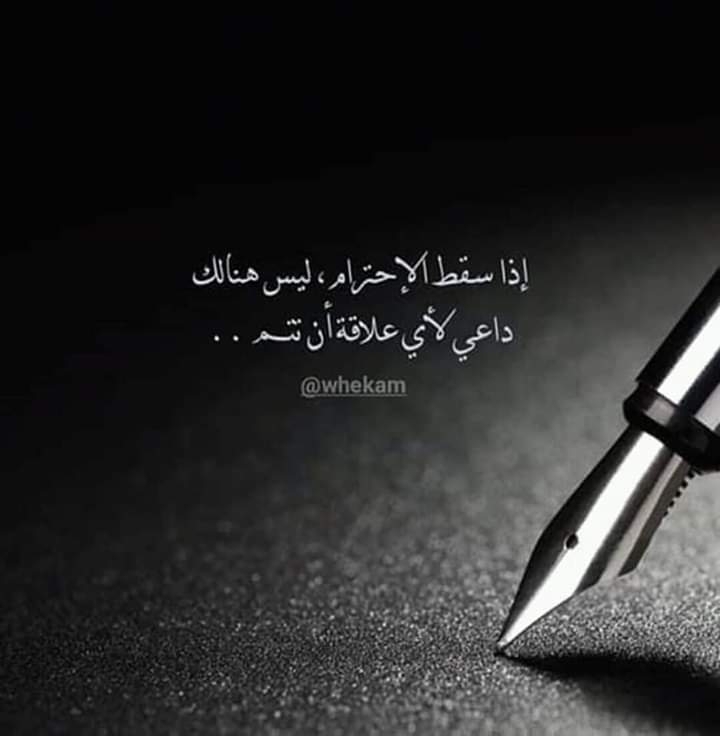 إذا سقط الإحترام، ليس هنالك
داعي لأي علاقة أن تتم . .
@whekam